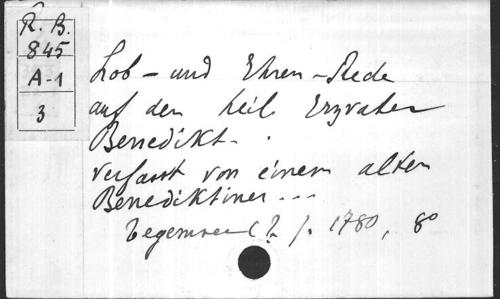 R. B.
845
A-1
3
Lob- und Ehren-Rede
auf den heil Erzvater
Benedikt.
Verfasst von einem alten
Benediktiner...
Tegernsee (?). 1780, 8°